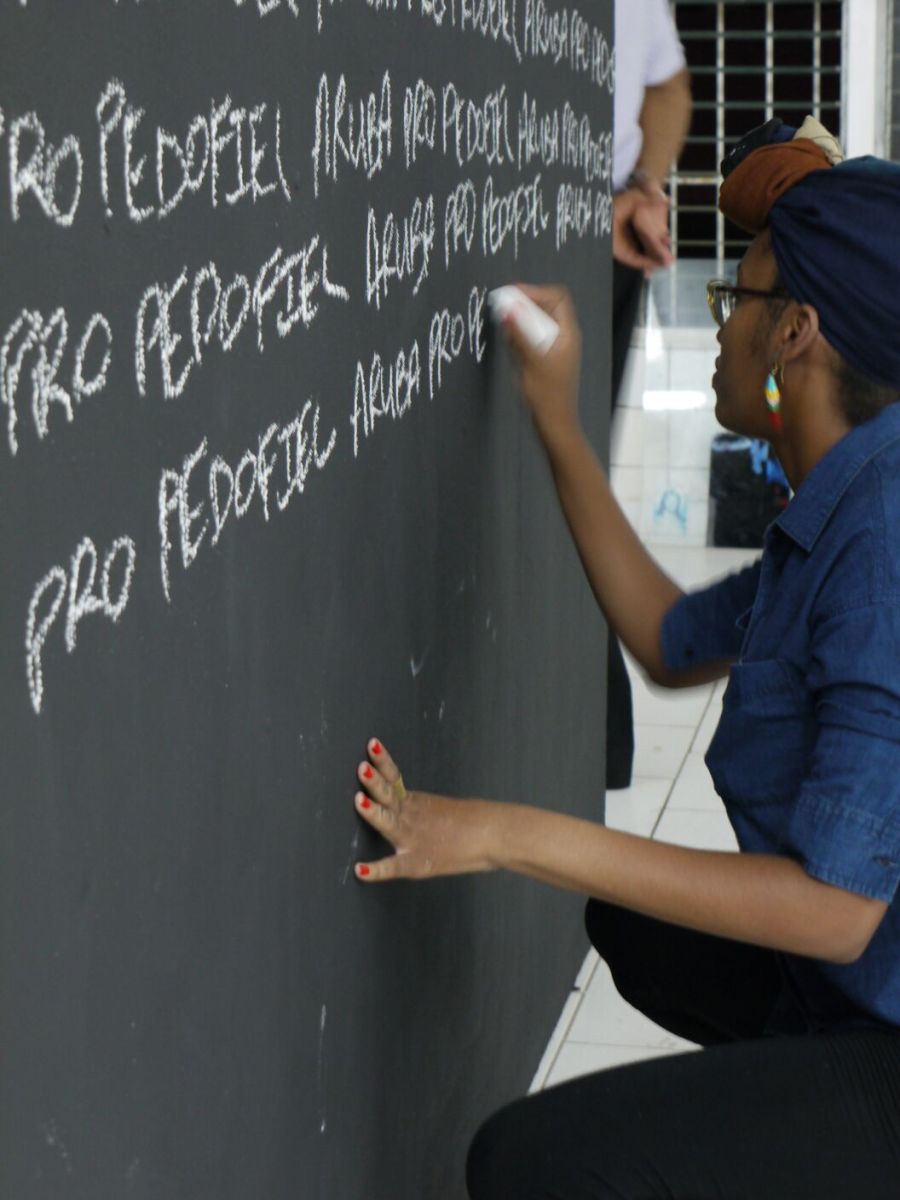 ARUBA PRO PEDO
PRO PEDOFIEL ARUBA PRO PEDOFIEL ARUBA PRO PEDOFIEL
PRO PEDOFIEL ARUBA PRO PEDOFIEL ARUBA PRO
PRO PEDOFIEL ARUBA PRO PE